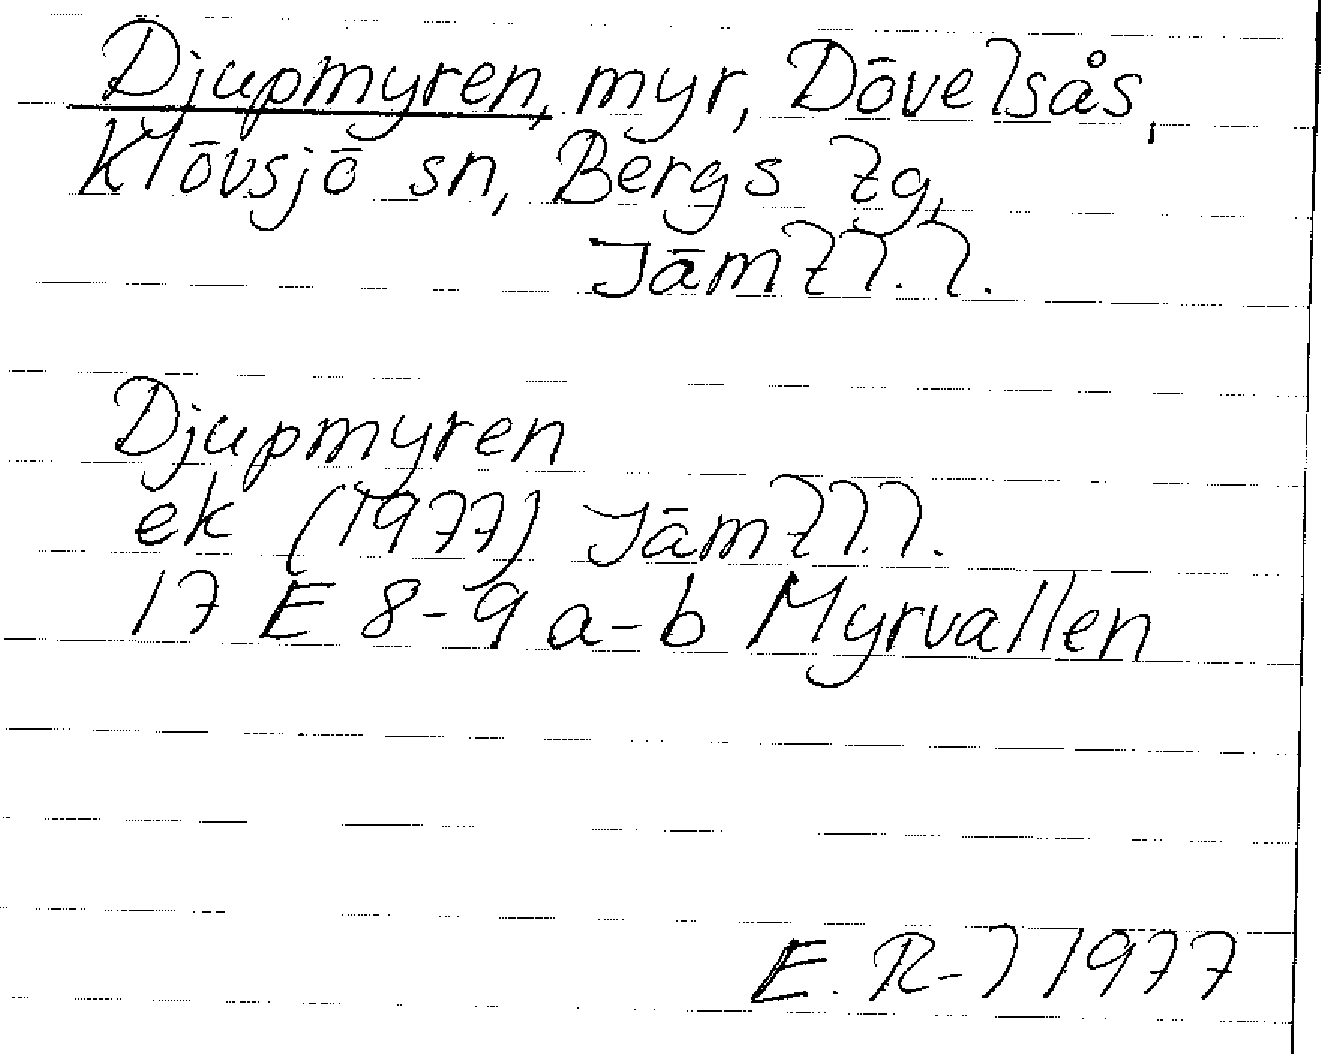 Djupmyren, myr, Dövelsås,
Klövsjö sn, Bergs tg,
Jämtl.l.
Djupmyren
ek (1977) Jämtl.l.
17 E 8-9 a-b Myrvallen
E. R-l 1977